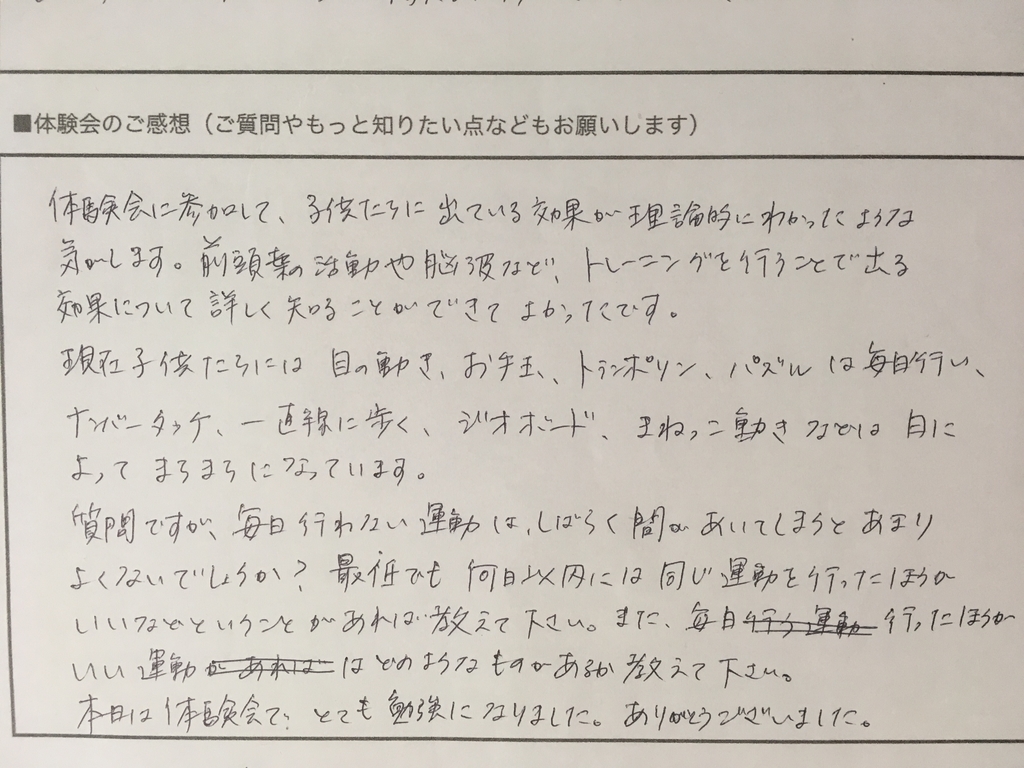 ■体験会のご感想（ご質問やもっと知りたい点などもお願いします）
体験会に参加して、子供たちに出ている効果が理論的にわかったような
気がします。前頭葉の活動や脳波など、トレーニングを行うことで出る
効果について詳しく知ることができてよかったです。
現在子供たちには目の動き、お手玉、トランポリン、パズルは毎日行い、
ナンバータッチ、一直線に歩く、ジオボード、まねっこ動きなどは日に
よってまちまちになっています。
質問ですが、毎日行わない運動は、しばらく間があいてしまうとあまり
よくないでしょうか？最低でも何日以内には同じ運動を行ったほうが
いいなどということがあれば教えて下さい。また、毎日行う運動行ったほうが
いい運動があればはどのようなものがあるか教えて下さい。
本日は体験会で、とても勉強になりました。ありがとうございました。